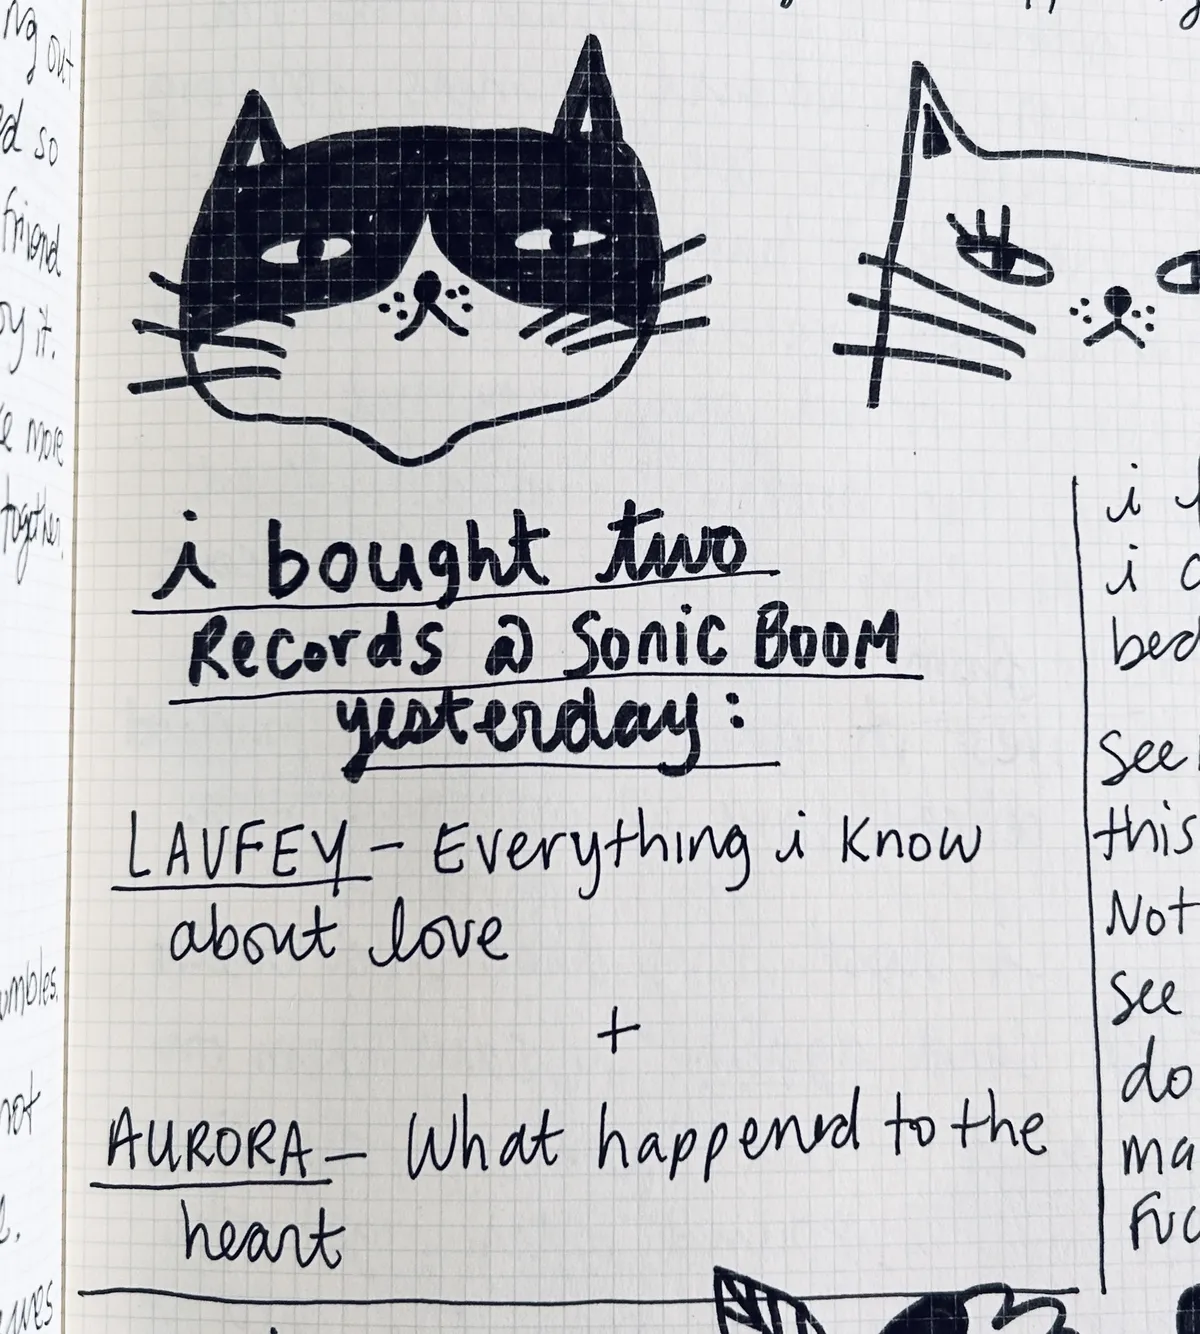 ng out
so
friend
it.
more
together.
not
i bought two
Records @ Sonic Boom
yesterday:
LAVFEY – Everything i know
about love
+
AURORA – What happened to the
heart
i
i
See
this
Not
See
do